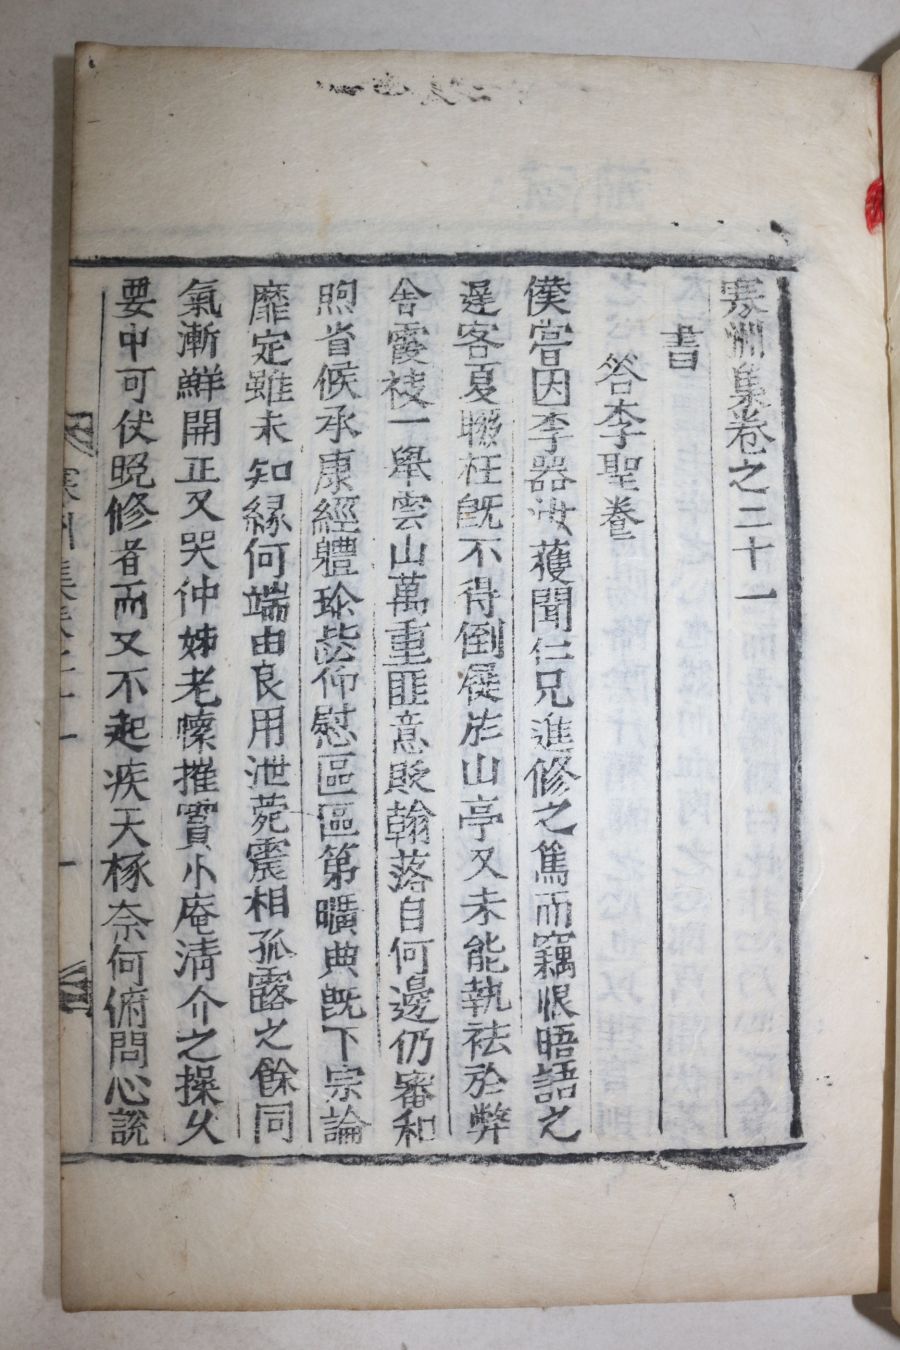 寒洲集卷之二十一
書
答李聖養
僕嘗因李器汝獲聞仁兄進修之篤而竊恨晤語之
遲客夏聯枉旣不得倒屣於山亭又未能執袪於弊
舍霞裬一舉雲山萬重匪意貶翰落自何邊仍審和
煦省候承康經軆珍毖仰慰區區第曠典旣下宗論
靡定雖未知緣何端由良用泄菀震相孤露之餘同
氣漸鮮開正又哭仲姊老懷摧實小庵淸介之操火
要中可伏晩修者而又不起疾天椓奈何俯問心說
寒洲集卷之二十一 一